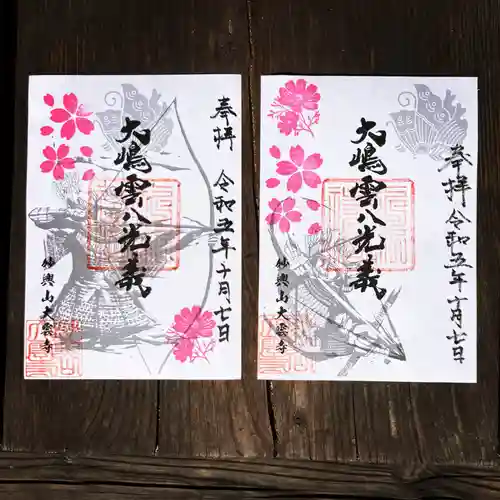 奉拝
令和五年十月七日
大嶋雲八光義
妙興山大雲寺
奉拝
令和五年十月七日
大嶋雲八光義
妙興山大雲寺